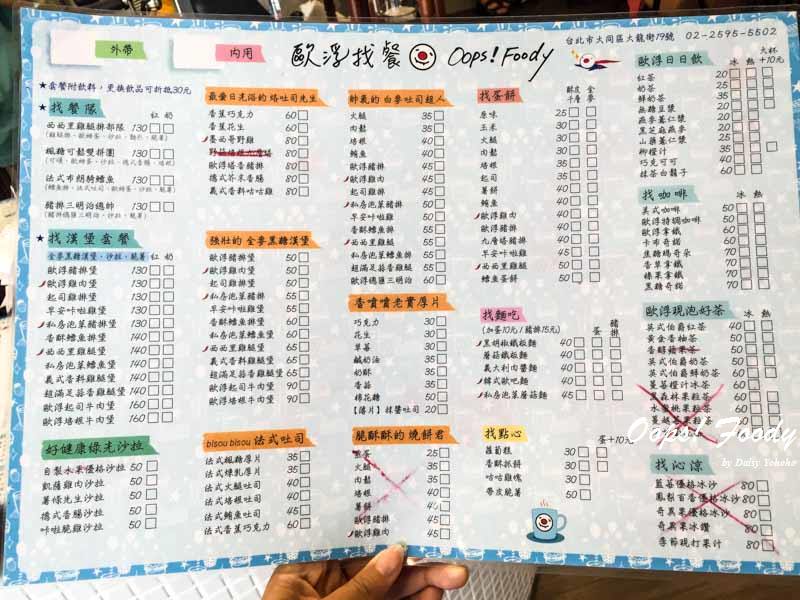 外帶
內用
歐浮找餐 Oops! Foody
台北市大同區大龍街79號 02-2595-5502
★套餐附飲料，更換飲品可折抵30元
★找餐隊 紅 奶
西西里雞腿排部隊 130
楓糖可鬆雙拼團 130
法式布朗騎鱈魚 130
豬排三明治總帥 130
★找漢堡套餐
全麥黑糖漢堡、沙拉、脆薯 紅 奶
歐浮豬排堡 130
歐浮雞肉堡 130
起司雞排堡 130
早安咔啦堡 130
私房泡菜豬排堡 130
香酥鱈魚排堡 140
西西里雞腿堡 140
私房泡菜鱈魚堡 140
義式香料雞腿堡 140
超滿足蒜香雞腿堡 140
歐浮起司牛肉堡 160
歐浮培根牛肉堡 160
好健康綠光沙拉
自製水果優格沙拉 50
凱薩雞肉沙拉 50
薯條先生沙拉 50
德式香腸沙拉 50
咔啦脆雞沙拉 50
最愛日光浴的 烙吐司先生
香蕉巧克力 60
香蕉花生 60
墨西哥野雞 80
歐浮塔香豬排 80
德式芥末香腸 80
義式香料咕咕雞 80
強壯的 全麥黑糖漢堡
歐浮豬排堡 50
歐浮雞肉堡 50
起司雞排堡 50
私房泡菜豬排堡 55
早安咔啦雞堡 55
香酥鱈魚排堡 55
西西里雞腿堡 55
私房泡菜鱈魚堡 60
義式香料雞腿堡 65
超滿足蒜香雞腿堡 65
歐浮起司牛肉堡 90
歐浮培根牛肉堡 90
bisou bisou 法式吐司
法式楓糖厚片 35
法式煉乳厚片 35
法式火腿吐司 50
法式培根吐司 50
法式鮪魚吐司 50
法式香蕉巧克力 60
帥氣的 白麥吐司超人
火腿 35
肉鬆 35
培根 40
鮪魚 40
歐浮豬排 45
歐浮雞肉 45
起司雞排 45
私房泡菜豬排 50
早安咔啦雞 50
香酥鱈魚排 55
西西里雞腿 55
私房泡菜鱈魚 55
超滿足蒜香雞腿 60
歐浮總匯三明治 60
香噴噴老實厚片
巧克力 30
花生 30
草莓 30
鹹奶油 35
奶酥 35
香蒜 35
棉花糖 50
【薄片】抹醬吐司 20
脆酥酥的 燒餅君
蔥蛋 25
火腿 35
肉鬆 35
培根 40
薯餅 40
歐浮豬排 45
歐浮雞肉 45
找蛋餅
原味 25
玉米 30
火腿 30
肉鬆 30
培根 35
起司 35
薯餅 40
鮪魚 40
歐浮雞肉 40
歐浮豬排 40
九層塔豬排 45
早安咔啦雞 45
西西里雞腿 50
鱈魚蛋餅 50
找麵吃
(加蛋10元/豬排15元) 蛋 豬排
黑胡椒鐵板麵 40
蘑菇鐵板麵 40
義大利肉醬麵 40
韓式歐吧麵 40
私房泡菜蘑菇麵 45
找點心 蛋+10元
蘿蔔糕 30
香酥抓餅 30
咕咕雞塊 30
帶皮脆薯 50
歐浮日日飲 冰 熱 大杯+10元
紅茶 20
奶茶 25
鮮奶茶 35
無糖豆漿 20
燕麥薏仁漿 25
黑芝麻燕麥 25
山藥薏仁漿 25
柳橙汁 35
巧克可可 40
抹茶白鬍子 60
找咖啡 冰 熱
美式咖啡 50
歐浮特調咖啡 50
歐浮拿鐵 60
卡布奇諾 60
焦糖瑪奇朵 70
香草拿鐵 70
榛果拿鐵 70
黑糖奇諾 70
歐浮現泡好茶 冰 熱
英式伯爵紅茶 40
黃金香柚茶 50
香醇蘋果茶 50
英式伯爵奶茶 50
英式伯爵鮮奶茶 60
蔓莓橙汁冰茶 60
黑森林果粒茶
水蜜桃果粒茶
蔓越莓果粒茶
找沁涼
藍莓優格冰沙 80
鳳梨百香優格冰沙 80
奇異果優格冰沙 80
奇異果冰鑽 80
季節現打果汁 80
Oops! Foody
by Daisy Yohoho